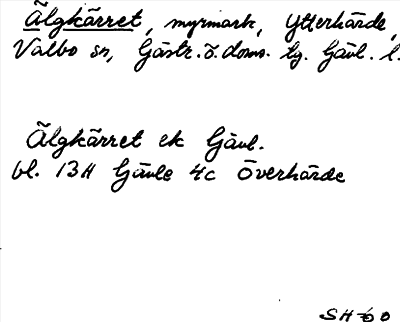 Älgkärret, myrmark, Ytterhärde,
Valbo sn, Gästr. ö. doms. tg. Gävl. l.
Älgkärret ek Gävl.
bl. 13H Gävle 4c Överhärde
SH 60